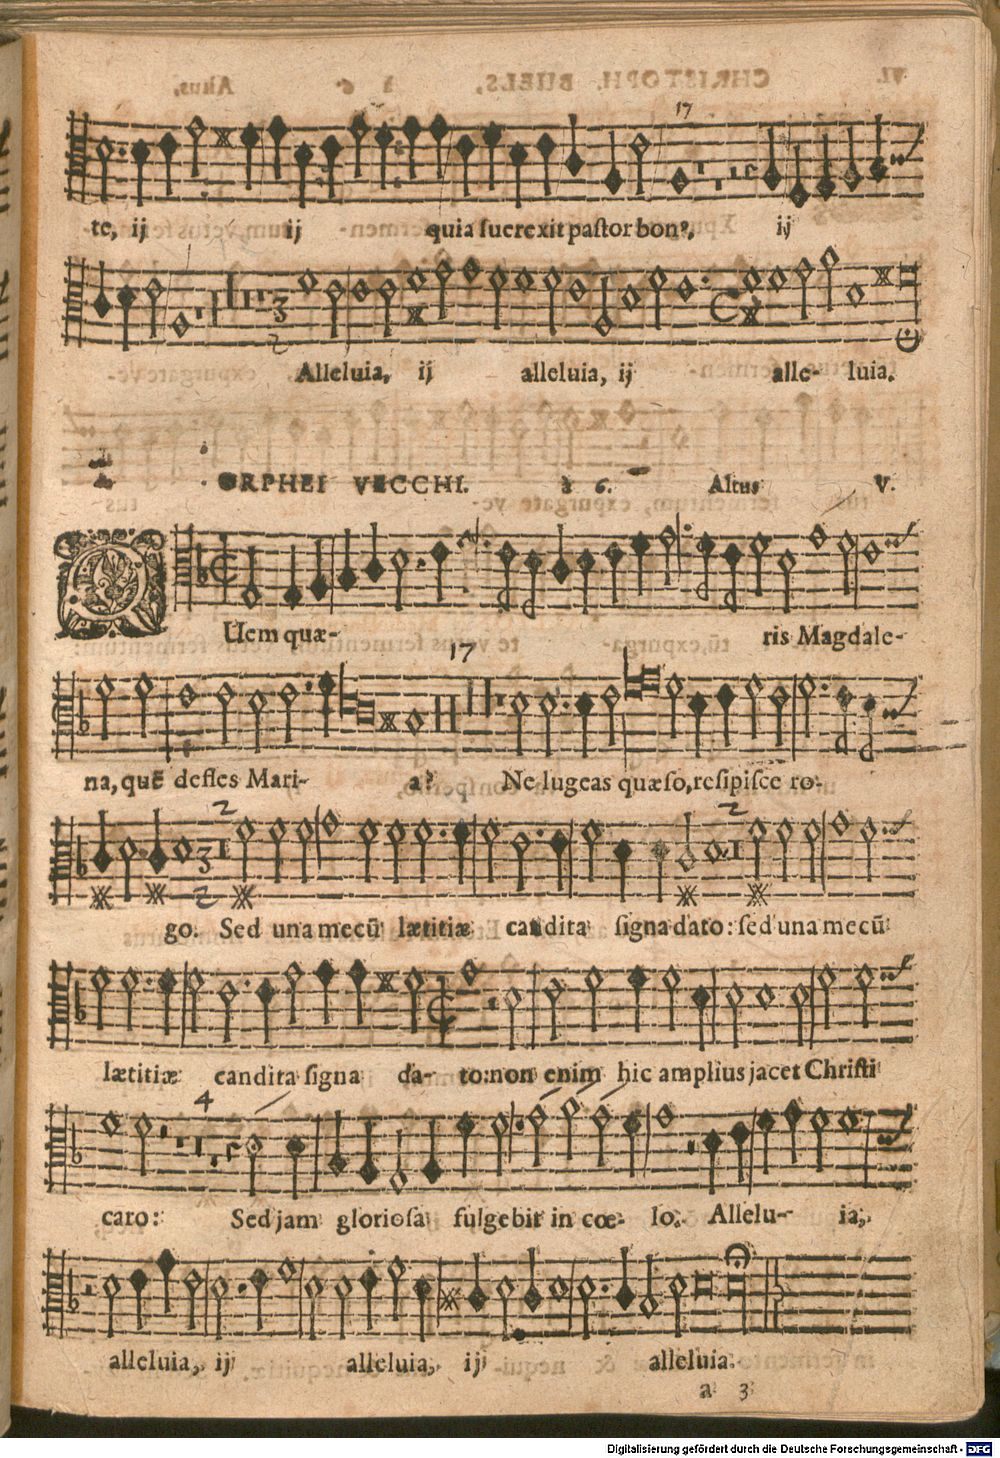 17
te, ij ij quia surrexit pastor bon⁹, ij
Alleluia, ij alleluia, ij alle- luia.
ORPHEI VECCHI. à 6. Altus V.
QUem quæ- ris Magdale-
17
na, quẽ defles Mari- a? Ne lugeas quæso, resipisce ro-
2 2
go. Sed una mecũ lætitiæ candita signa dato: sed una mecũ
lætitiæ candita signa da- to: non enim hic amplius jacet Christi
4
caro: Sed jam gloriosa fulgebit in cœ- lo. Allelu- ia,
alleluia, ij alleluia, ij alleluia.
a 3
Digitalisierung gefördert durch die Deutsche Forschungsgemeinschaft - DFG